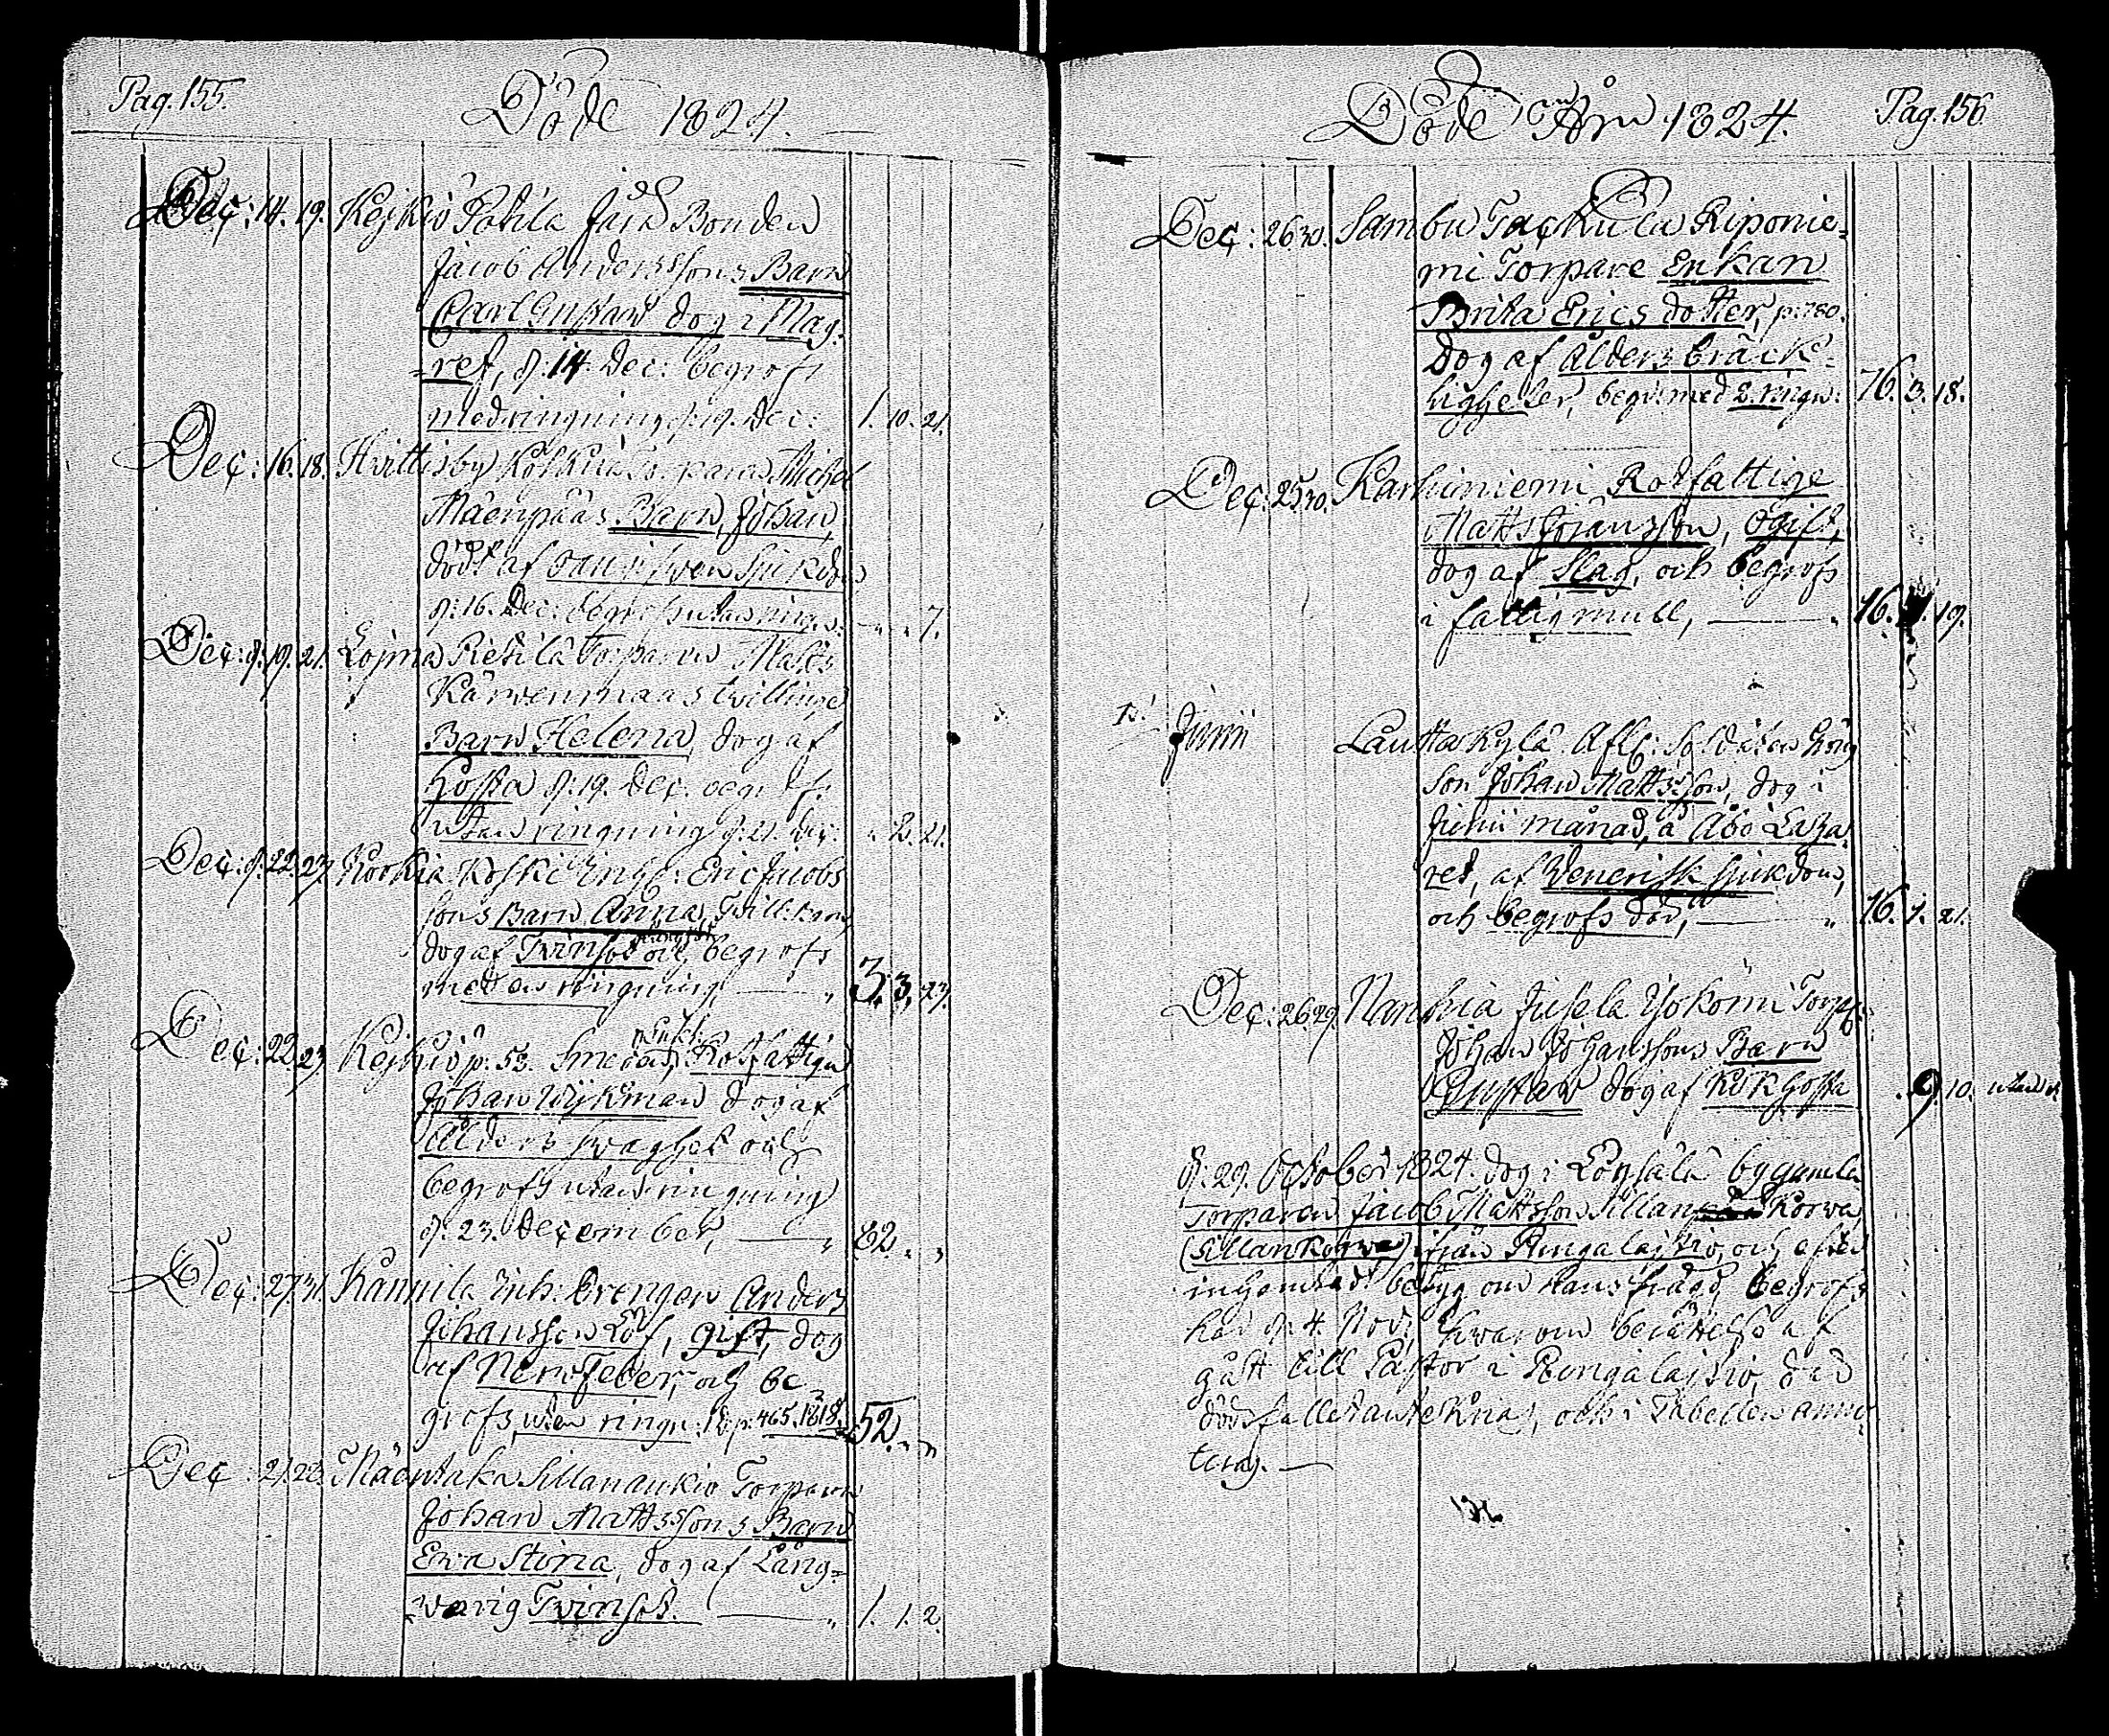 Pag. 155.
Döde 1824.
Dec: 14. 19. Kejkiö Pätilä Jara Bonden
Jacob Anderssons Barn
Carl Gustav dog i Mag-
=ref, d: 14 Dec: begrofs
med ringning d: 19. Dec: 1. 10. 21.
Dec: 16. 18. Hvittisby Torparen Michel
Mäenpääs Barn, Johan,
dödt af
d: 16. Dec: begrofs utan ringn: " " 7.
Dec: d. 19. 21. Lojma Retilä Torparen Matts
Kärwenmaas twillinge
Barn Helena, dog af
Hosta d: 19. Dec. begrofs
utan ringning d: 21. Dec: " 2. 21.
Dec: d. 22. 27. Korkia Koski Inh: Eric Jacobs
sons Barn Anna, Twill: barn
dog af Twinsot och begrofs
med en ringning, " 3. 3. 27.
Dec: 22. 23. Kejkiö p: 53. Smeden, Rotfattign
Johan Wijkman dog af
Ålders swaghet och
begrofs utan ringning
d: 23. December, " 82. " "
Dec: 27. 31. Kannila Inh: Drengen Anders
Johansson Löf, gift, dog
af NervFeber, och be-
grofs utan ringn: p: 465. 1818. 52. " "
Dec: 21. 28. Mäentaka Sillanaukio Torparen
Johan Mattssons Barn
Ewa Stina, dog af Lång=
=warig Twinsot. " 1. 1. 2.
Pag. 156
Döde Åhr 1824.
Dec: 26. 30. Sambu Tackula Riponie=
mi Torpare Enkan
Brita Erics dotter, p: 780.
dog af Ålders bräck-
ligheter, begr: med 2. ringn: 76. 3. 18.
Dec: 25. 30. Karhiniemi Rotfattige
Matts Johansson, Ogift,
dog af Slag, och begrofs
i fattigmull, " 16. 19.
Junii Lauttakylä Afl: Soldaten Hörg
son Johan Mattsson, dog i
Junii månad, å Åbo Laza-
ret, af Venerisk sjukdom,
och begrofs där, " 16. 1. 21.
Dec: 26. 29. Nanhia Jusela Yskömi Torp:
Johan Johanssons Barn
Gustav dog af Kikhosta . 9. 10. utan r:
d: 29. October 1824. dog i Löysälä by gamla
Torparen Jacob Mattsson Sillan Korva
(Sillankorva) ifrån Pungalajtio, och efter
inhemtadt betyg om hans frägd begrofs
här d: 4. Nov: hwarom berättelse af
gått till Pastor i Pungalajtio, där
dödsfallet antecknas, och i Tabellen anno
teras.